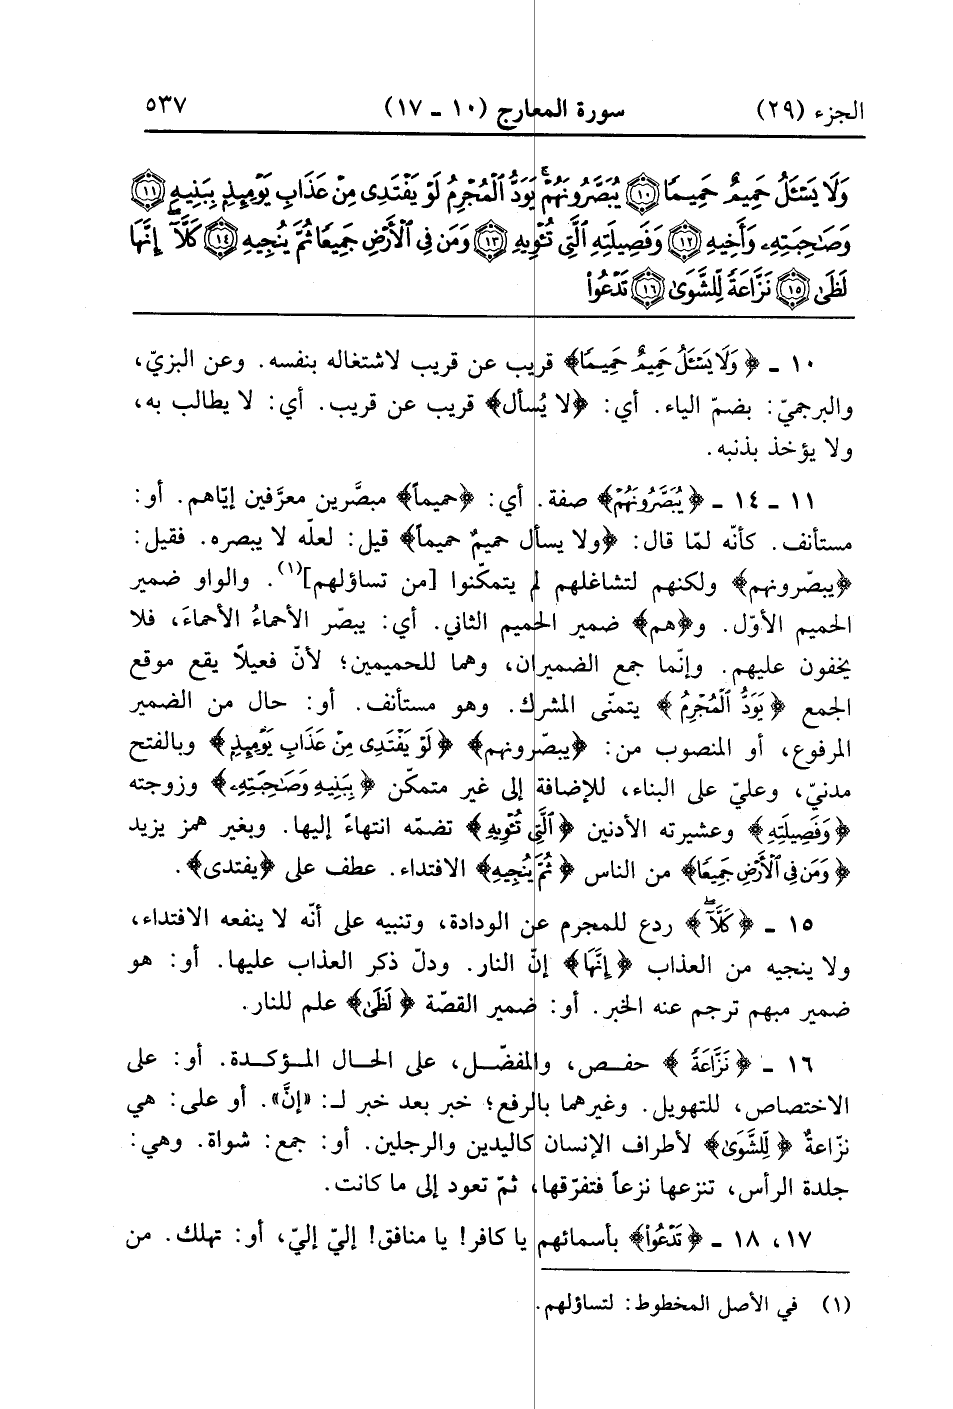 الجزء (٢٩) سورة المعارج (١٠ ـ ١٧) ٥٣٧
وَلَا يَسْـَٔلُ حَمِيمٌ حَمِيمًا ﴿١٠﴾ يُبَصَّرُونَهُمْ ۚ يَوَدُّ ٱلْمُجْرِمُ لَوْ يَفْتَدِى مِنْ عَذَابِ يَوْمِئِذٍۭ بِبَنِيهِ ﴿١١﴾
وَصَـٰحِبَتِهِۦ وَأَخِيهِ ﴿١٢﴾ وَفَصِيلَتِهِ ٱلَّتِى تُـْٔوِيهِ ﴿١٣﴾ وَمَن فِى ٱلْأَرْضِ جَمِيعًا ثُمَّ يُنجِيهِ ﴿١٤﴾ كَلَّآ ۖ إِنَّهَا
لَظَىٰ ﴿١٥﴾ نَزَّاعَةً لِّلشَّوَىٰ ﴿١٦﴾ تَدْعُوا۟
١٠ ـ ﴿وَلَا يَسْـَٔلُ حَمِيمٌ حَمِيمًا﴾ قريب عن قريب لاشتغاله بنفسه. وعن البزيّ،
والبرجميّ: بضمّ الياء. أي: ﴿لا يُسأل﴾ قريب عن قريب. أي: لا يطالب به،
ولا يؤخذ بذنبه.
١١ ـ ١٤ ـ ﴿يُبَصَّرُونَهُمْ﴾ صفة. أي: ﴿حميماً﴾ مبصَّرين معرَّفين إيّاهم. أو:
مستأنف. كأنّه لمّا قال: ﴿ولا يسأل حميمٌ حميماً﴾ قيل: لعلّه لا يبصره. فقيل:
﴿يبصّرونهم﴾ ولكنهم لتشاغلهم لم يتمكّنوا [من تساؤلهم](١). والواو ضمير
الحميم الأوّل. و﴿هم﴾ ضمير الحميم الثاني. أي: يبصّر الأحماءُ الأحماءَ، فلا
يخفون عليهم. وإنّما جمع الضميران، وهما للحميمين؛ لأنّ فعيلاً يقع موقع
الجمع ﴿يَوَدُّ ٱلْمُجْرِمُ﴾ يتمنّى المشرك. وهو مستأنف. أو: حال من الضمير
المرفوع، أو المنصوب من: ﴿يبصّرونهم﴾ ﴿لَوْ يَفْتَدِى مِنْ عَذَابِ يَوْمِئِذٍ﴾ وبالفتح
مدنيّ، وعليّ على البناء، للإضافة إلى غير متمكن ﴿بِبَنِيهِ وَصَـٰحِبَتِهِۦ﴾ وزوجته
﴿وَفَصِيلَتِهِ﴾ وعشيرته الأدنين ﴿ٱلَّتِى تُـْٔوِيهِ﴾ تضمّه انتهاءً إليها. وبغير همز يزيد
﴿وَمَن فِى ٱلْأَرْضِ جَمِيعًا﴾ من الناس ﴿ثُمَّ يُنجِيهِ﴾ الافتداء. عطف على ﴿يفتدى﴾.
١٥ ـ ﴿كَلَّآ ۖ﴾ ردع للمجرم عن الودادة، وتنبيه على أنّه لا ينفعه الافتداء،
ولا ينجيه من العذاب ﴿إِنَّهَا﴾ إنّ النار. ودلّ ذكر العذاب عليها. أو: هو
ضمير مبهم ترجم عنه الخبر. أو: ضمير القصّة ﴿لَظَىٰ﴾ علم للنار.
١٦ ـ ﴿نَزَّاعَةً﴾ حفـص، والمفضّـل، على الحـال المـؤكـدة. أو: على
الاختصاص، للتهويل. وغيرهما بالرفع؛ خبر بعد خبر لـ: «إنَّ». أو على: هي
نزّاعةٌ ﴿لِّلشَّوَىٰ﴾ لأطراف الإنسان كاليدين والرجلين. أو: جمع: شواة. وهي:
جلدة الرأس، تنزعها نزعاً فتفرّقها، ثمّ تعود إلى ما كانت.
١٧، ١٨ ـ ﴿تَدْعُوا۟﴾ بأسمائهم يا كافر! يا منافق! إليّ إليّ، أو: تهلك. من
(١) في الأصل المخطوط: لتساؤلهم.